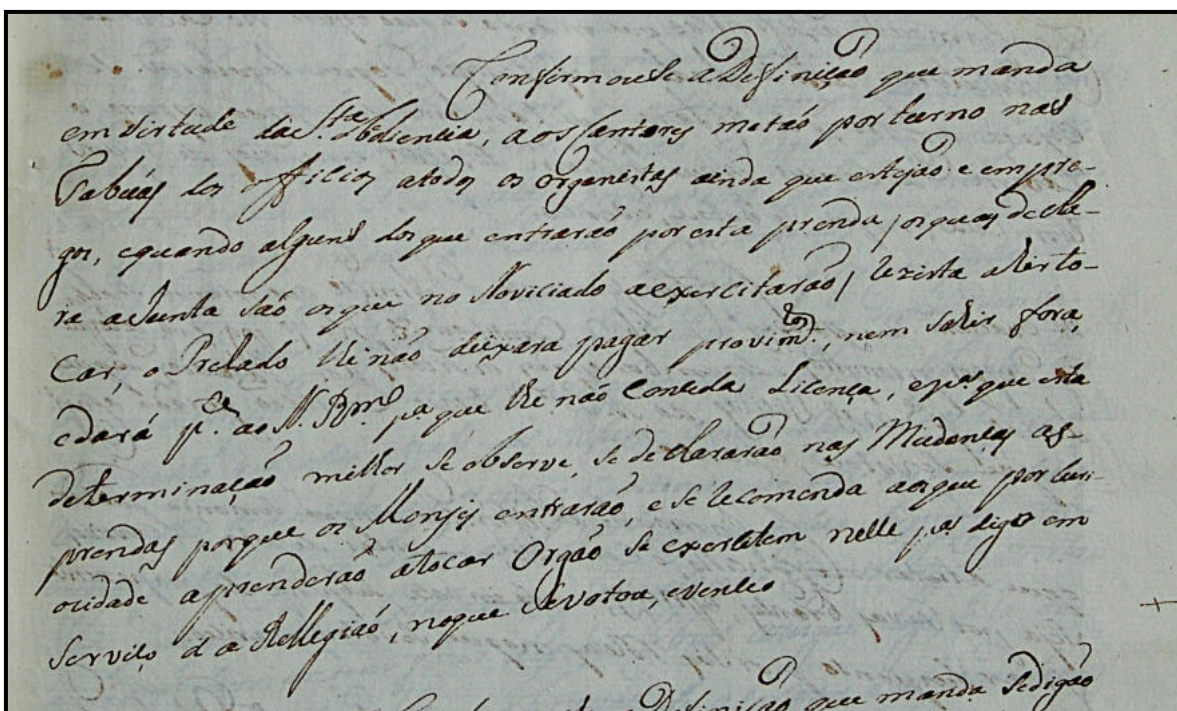 Confirmouse a Definição que manda
em virtude da S.ta Obediencia, aos Cantores metaõ por turno nas
Taboás dos officios atodos os organistas ainda que estejaõ e empre-
gos, equando alguns dos que entraraõ por esta prenda /osquaes decla-
ra aJunta saõ osque no Noviciado aexercitaraõ/ rezista a ver to-
car, o Prelado lhe não deixara pagar provim.tos, nem sahir fora,
edará p.e ao N. Rm.o p.a que lhe não conceda Licença, epa que esta
determinaçaõ milhor se observe, se declararaõ nas Mudanças as
prendas porque os Monjes entraraõ, e se recomenda aosque por curi-
ozidade aprenderaõ atocar Orgaõ se exercitem nelle pa digo em
serviço da Relligiaõ, noque sevotou, evenceo
Definiçaõ que manda sedigaõ